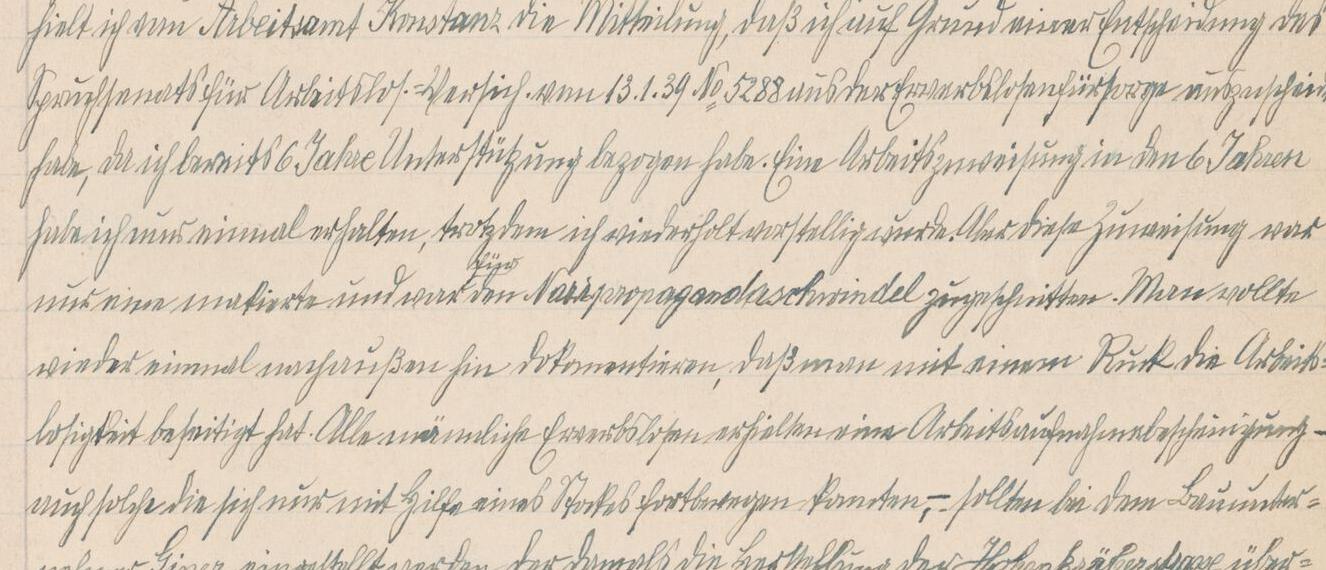 hielt ich vom Arbeitsamt Konstanz die Mitteilung, daß ich auf Grund einer Entscheidung des
Spruchsenats für Arbeitslos.-Versich. vom 13.1.39 No 5288 aus der Erwerbslosenfürsorge auszuscheiden
habe, da ich bereits 6 Jahre Unterstützung bezogen habe. Eine Arbeitszuweisung in den 6 Jahren
habe ich nur einmal erhalten, trotzdem ich wiederholt vorstellig wurde. Aber diese Zuweisung war
für
nur eine makierte und war den Nazipropagandaschwindel zugeschnitten. Man wollte
wieder einmal nach außen hin dokomentieren, daß man mit einem Ruck die Arbeits=
losigkeit beseitigt hat. Alle männliche Erwerbslosen erhielten eine Arbeitsaufnahmebescheinigung -
auch solche die sich nur mit Hilfe eines Stockes fortbewegen konnten, - sollten bei dem Bauunter=
eingestellt werden, der damals die Herstellung der über=